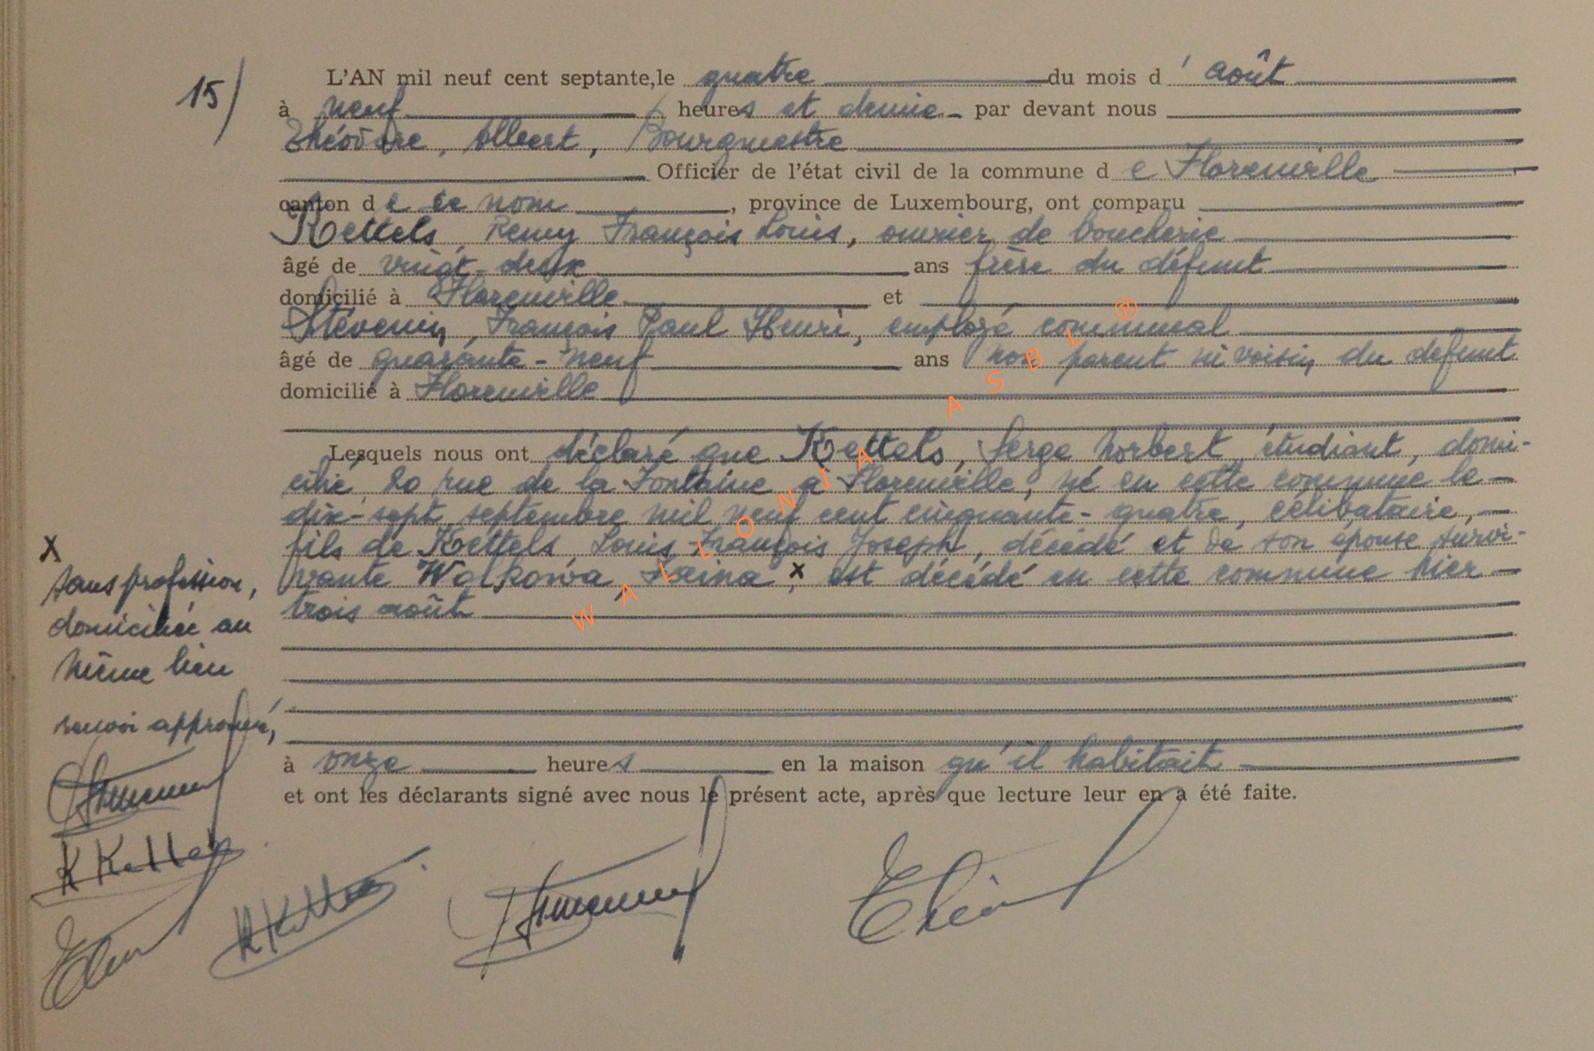 15/
L'AN mil neuf cent septante, le quatre du mois d' août
à neuf heures et demie par devant nous
Théodore, Albert, Bourgmestre
Officier de l'état civil de la commune de Florenville
canton de ce nom, province de Luxembourg, ont comparu
Kettels, Remy François Louis, ouvrier de boucherie
âgé de vingt-deux ans frère du défunt
domicilié à Florenville et
Stévenin, François Paul Henri, employé communal
âgé de quarante-neuf ans non parent ni voisin du défunt
domicilié à Florenville
Lesquels nous ont déclaré que Kettels, Serge Norbert, étudiant, domi-
cilié, rue de la Fontaine à Florenville, né en cette commune le
dix-sept septembre mil neuf cent cinquante-quatre, célibataire,
fils de Kettels, Louis François Joseph, décédé et de son épouse survi-
vante Wolkowa, X, est décédé en cette commune hier
trois août
X
sans profession,
domiciliée au
même lieu
renvoi approuvé,
à onze heures en la maison qu'il habitait
et ont les déclarants signé avec nous le présent acte, après que lecture leur en a été faite.
WALLONIA ASBL ®